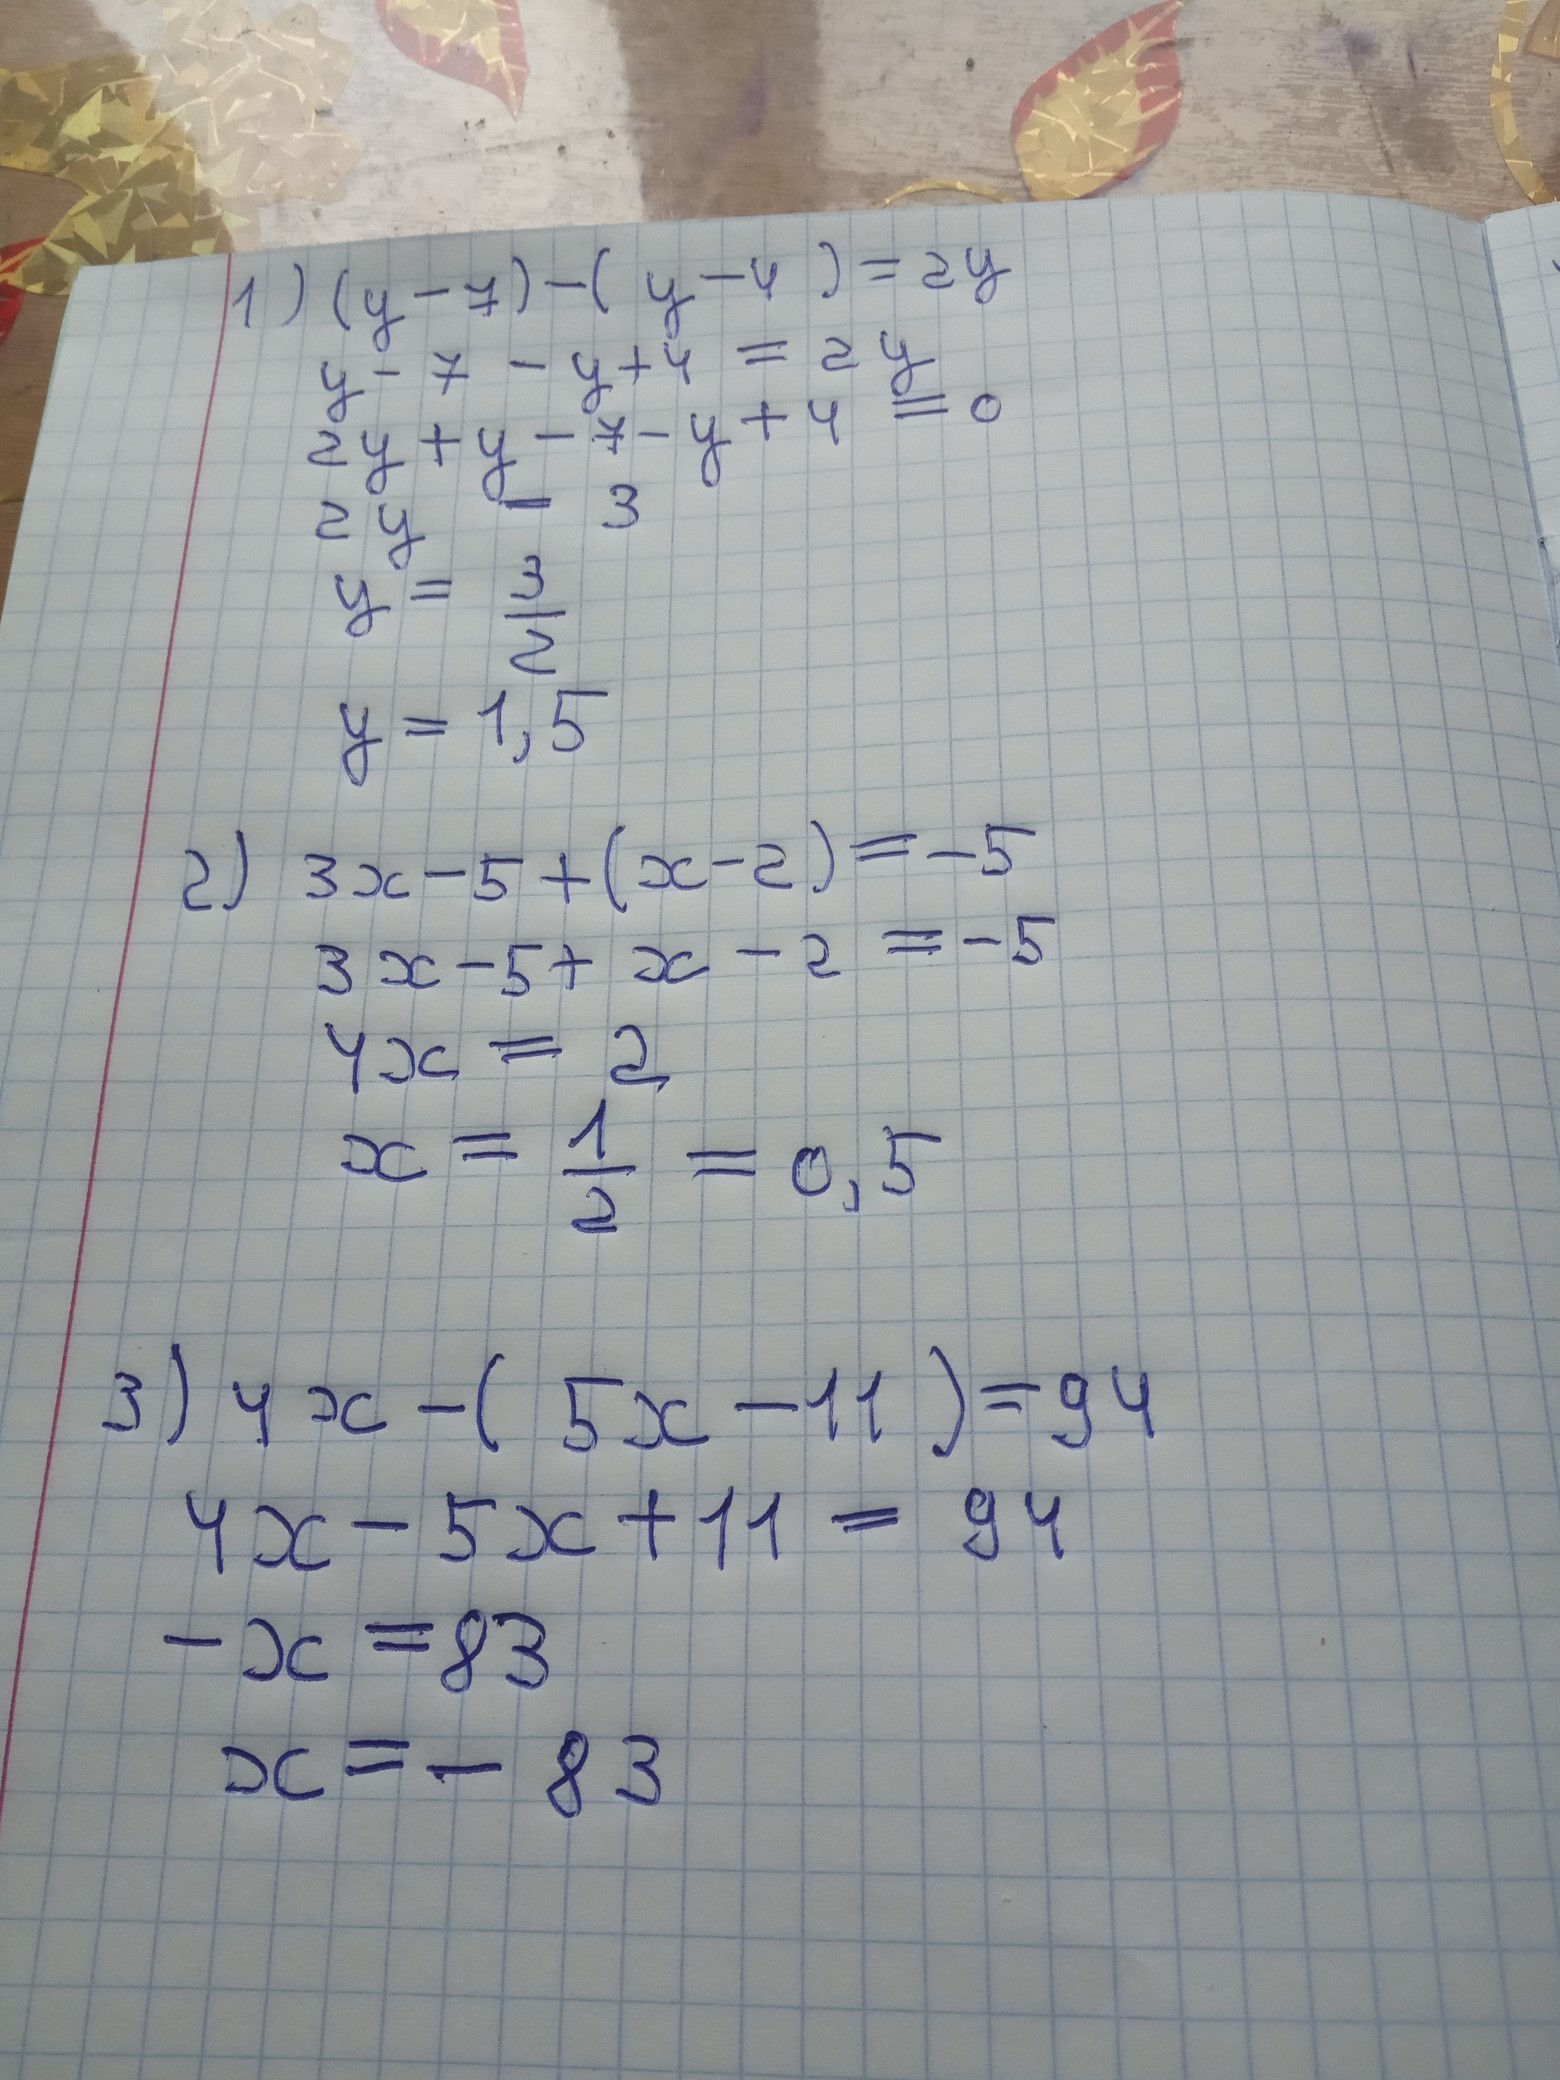 1) (y-7)-(y-4)=2y
y-7-y+4=2y
2y+y-7-y+4=0
2y=3
y=3/2
y=1,5
2) 3x-5+(x-2)=-5
3x-5+x-2=-5
4x=2
x=1/2=0,5
3) 4x-(5x-11)=94
4x-5x+11=94
-x=83
x=-83